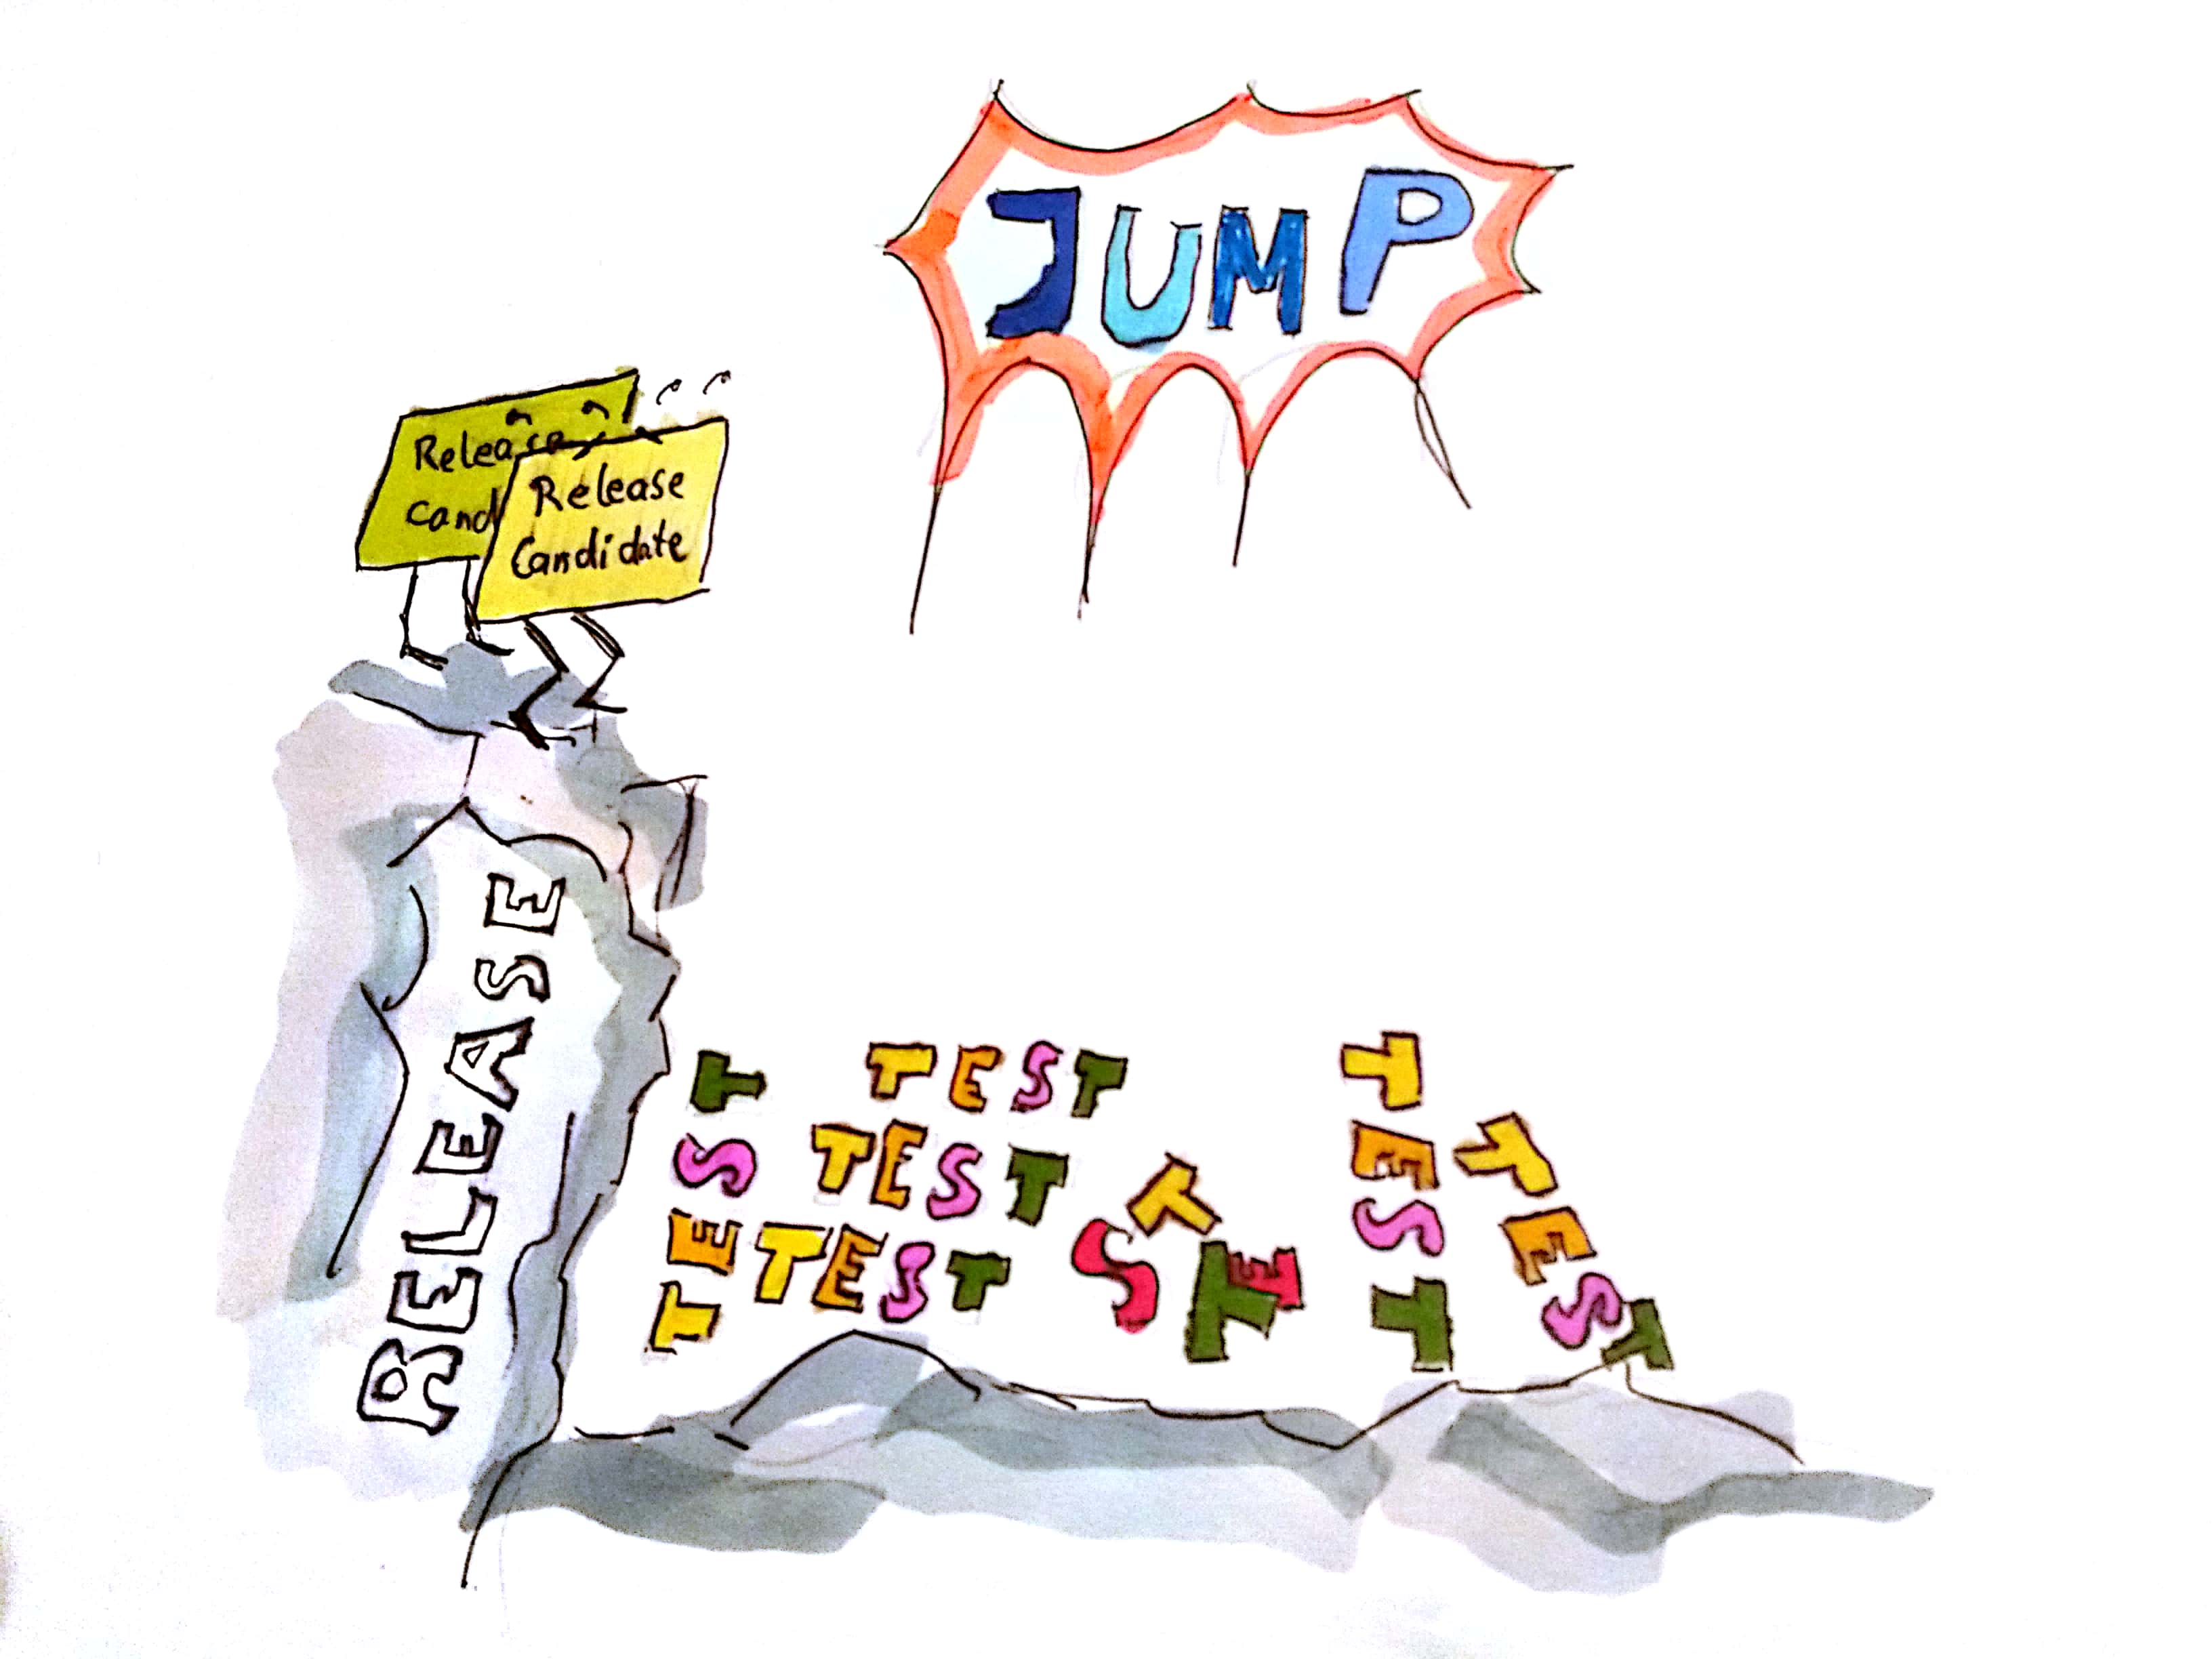 JUMP
Release
Cand
Release
Candidate
RELEASE
TEST
TEST
TEST
TEST
TEST
TEST
TEST